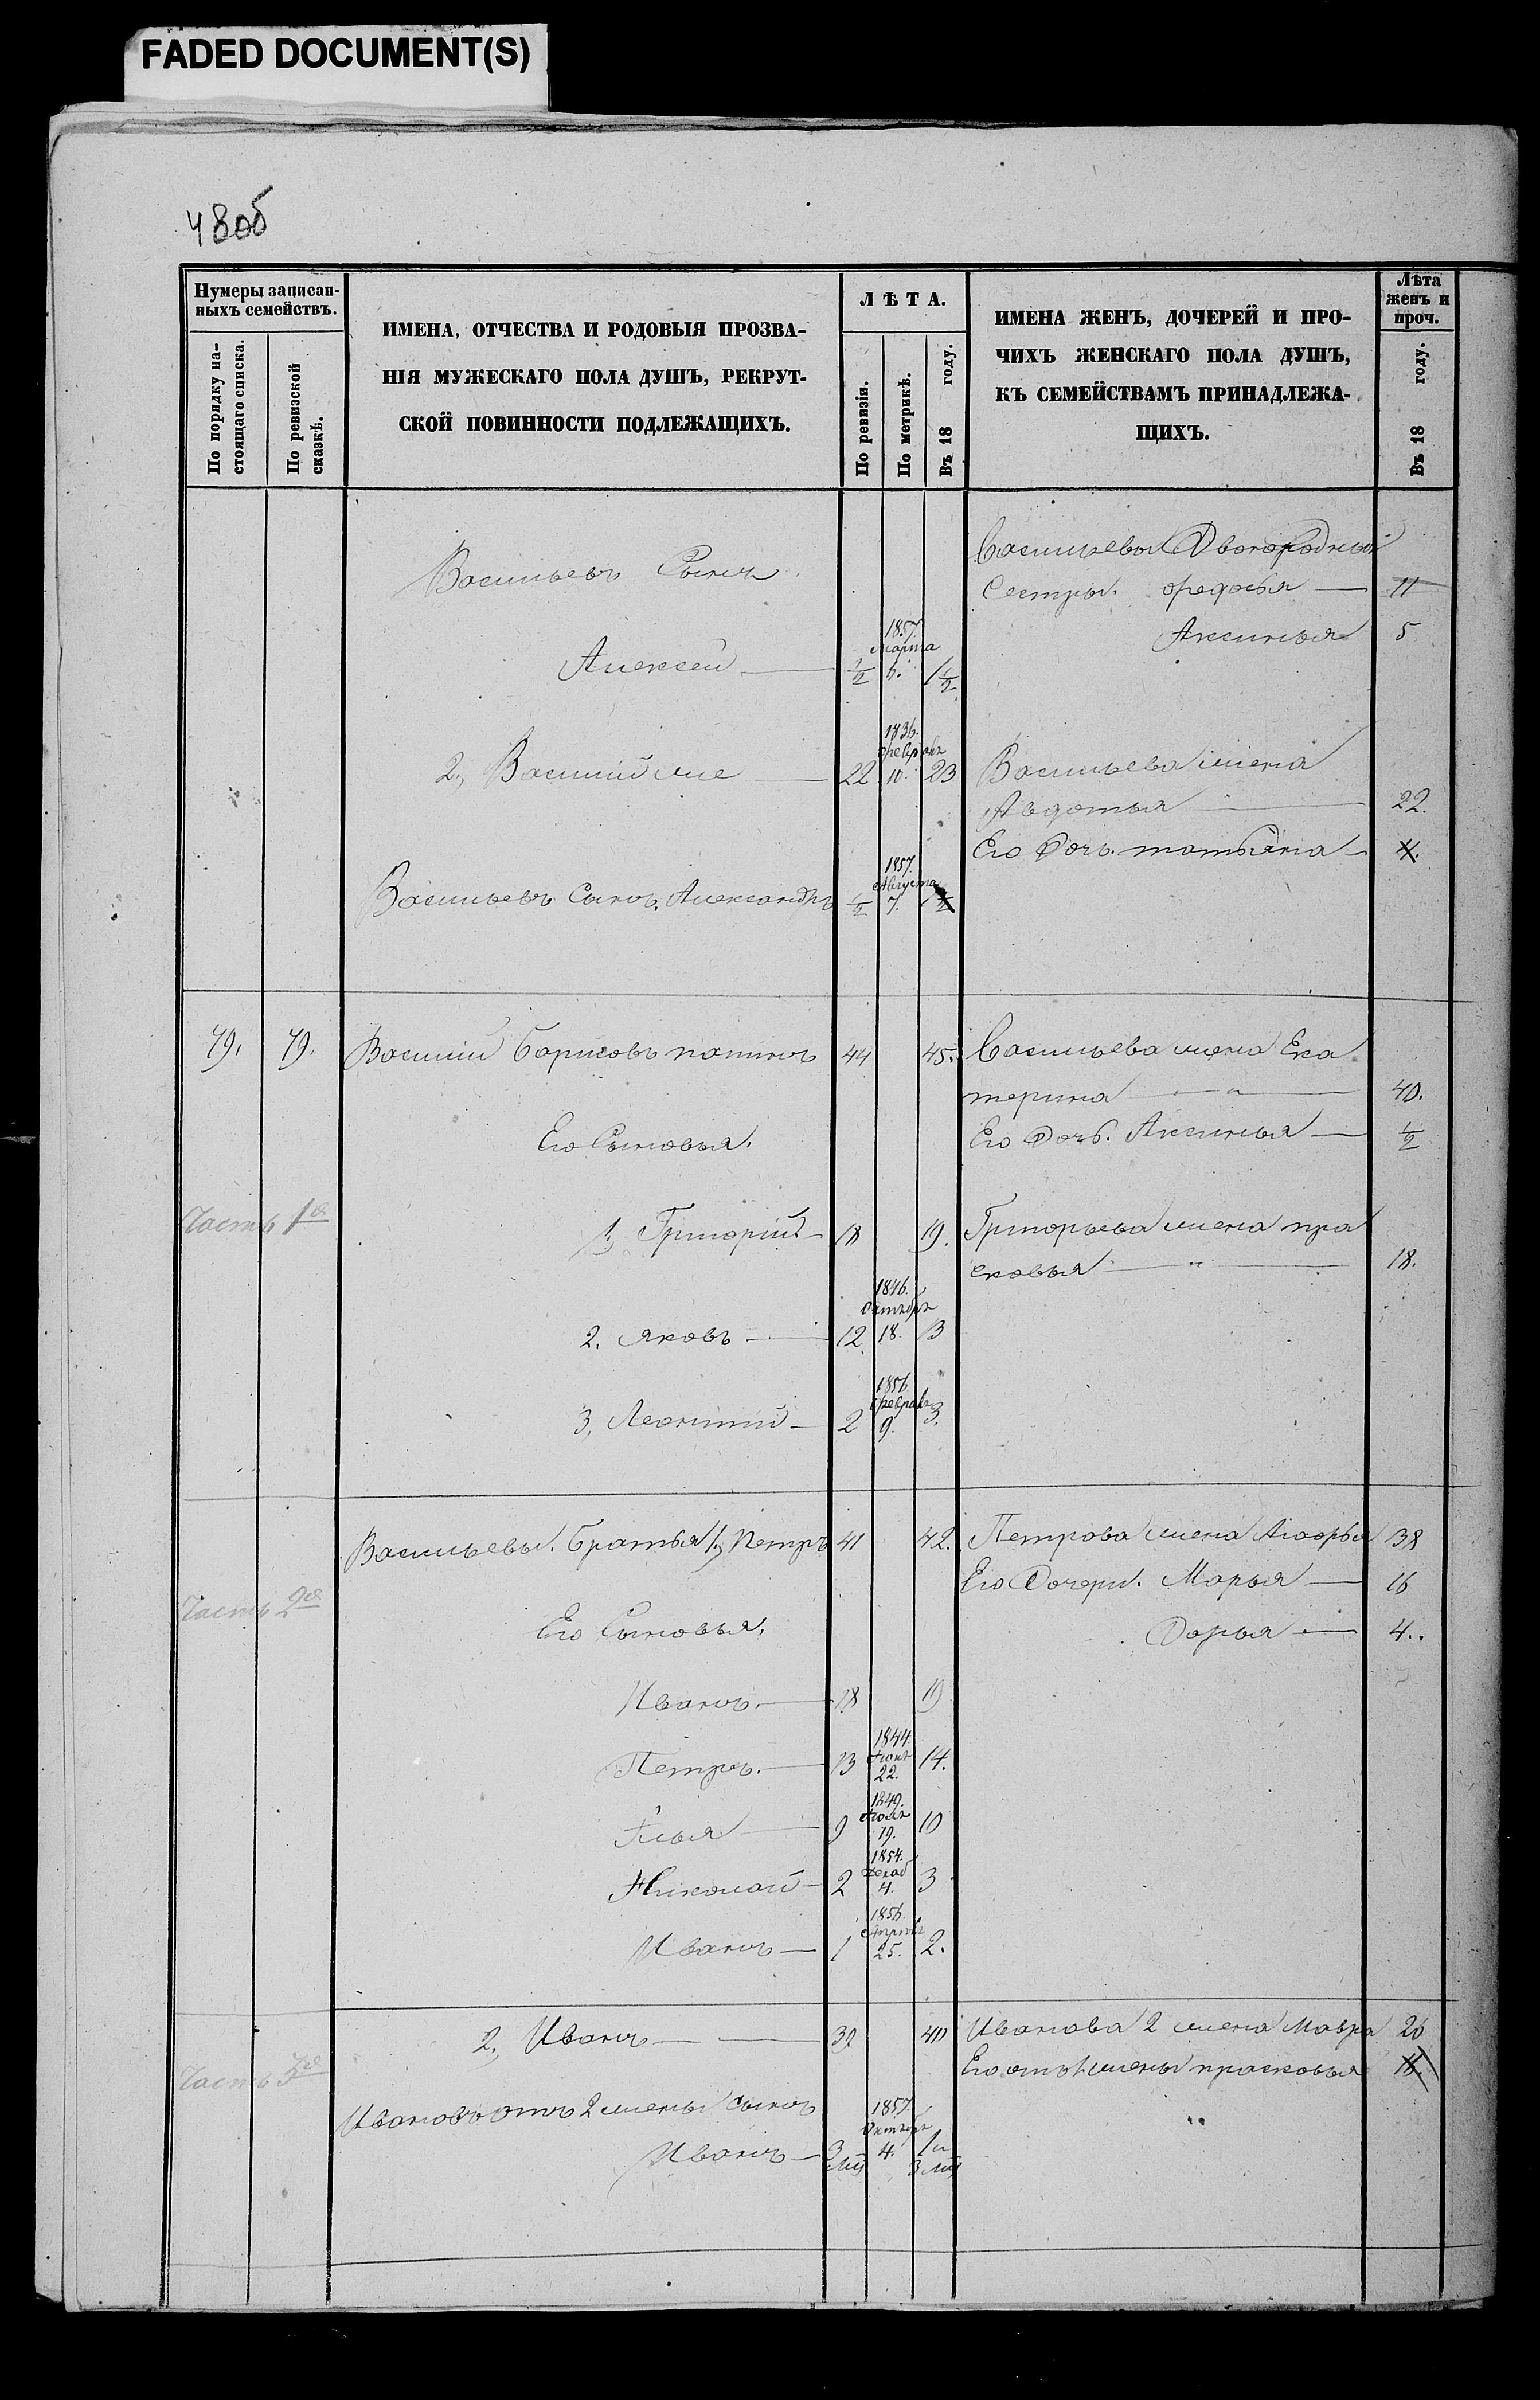 FADED DOCUMENT(S)
48об
Нумеры записан-
ныхъ семействъ.
По порядку на-
стоящаго списка.
По ревизской
сказкѣ.
ИМЕНА, ОТЧЕСТВА И РОДОВЫЯ ПРОЗВА-
НІЯ МУЖЕСКАГО ПОЛА ДУШЪ, РЕКРУТ-
СКОЙ ПОВИННОСТИ ПОДЛЕЖАЩИХЪ.
ЛѢТА.
По ревизіи.
По метрикѣ.
Въ 18 году.
ИМЕНА ЖЕНЪ, ДОЧЕРЕЙ И ПРО-
ЧИХЪ ЖЕНСКАГО ПОЛА ДУШЪ,
КЪ СЕМЕЙСТВАМЪ ПРИНАДЛЕЖА-
ЩИХЪ.
Лѣта
женъ и
проч.
Въ 18 году.
Васильевы Двоюродныя
Васильевъ Сынъ
Сестры. Федосья — 11
1857. Марта
Аксинья 5
Алексей — 1/2 6. 1 1/2
1836. Февраля
2, Василий же — 22 10. 23 Васильева жена
Авдотья — 22.
Его Дочь. татьяна — 4.
1857. Августа
Васильевъ Сынъ, Александръ 1/2 7. 1 1/2
79. 79. Василий Борисовъ 44 45. Васильева жена Ека
терина — " — 40.
Его Сыновья. Его Дочь. Аксинья — 1/2
Часть 1я
1, Григорий — 18 19. Григорьева жена пра
сковья — " — 18.
1846. Октября
2. яковъ — 12 18. 13
1856. Февраля
3, Леонтий — 2 9. 3.
Васильевы. Братья 1, Петръ 41 42. Петрова жена 38
Его Дочери. Марья — 16
Часть 2я
Его Сыновья. Дарья — 4.
Иванъ. — 18 19
1844.
Петръ. — 13 22. 14.
1849.
Илья — 9 19. 10
1854. Декаб
Николай — 2 4. 3
1856. Апреля
Иванъ — 1 25. 2.
2, Иванъ — 39 40 Иванова 2 жена Мавра 26
Часть 3я
Его отъ 1 жены прасковья
Ивановъ отъ 2 жены сынъ
1857. Октября
Иванъ — 3 мц 4. 1 и 3 мц